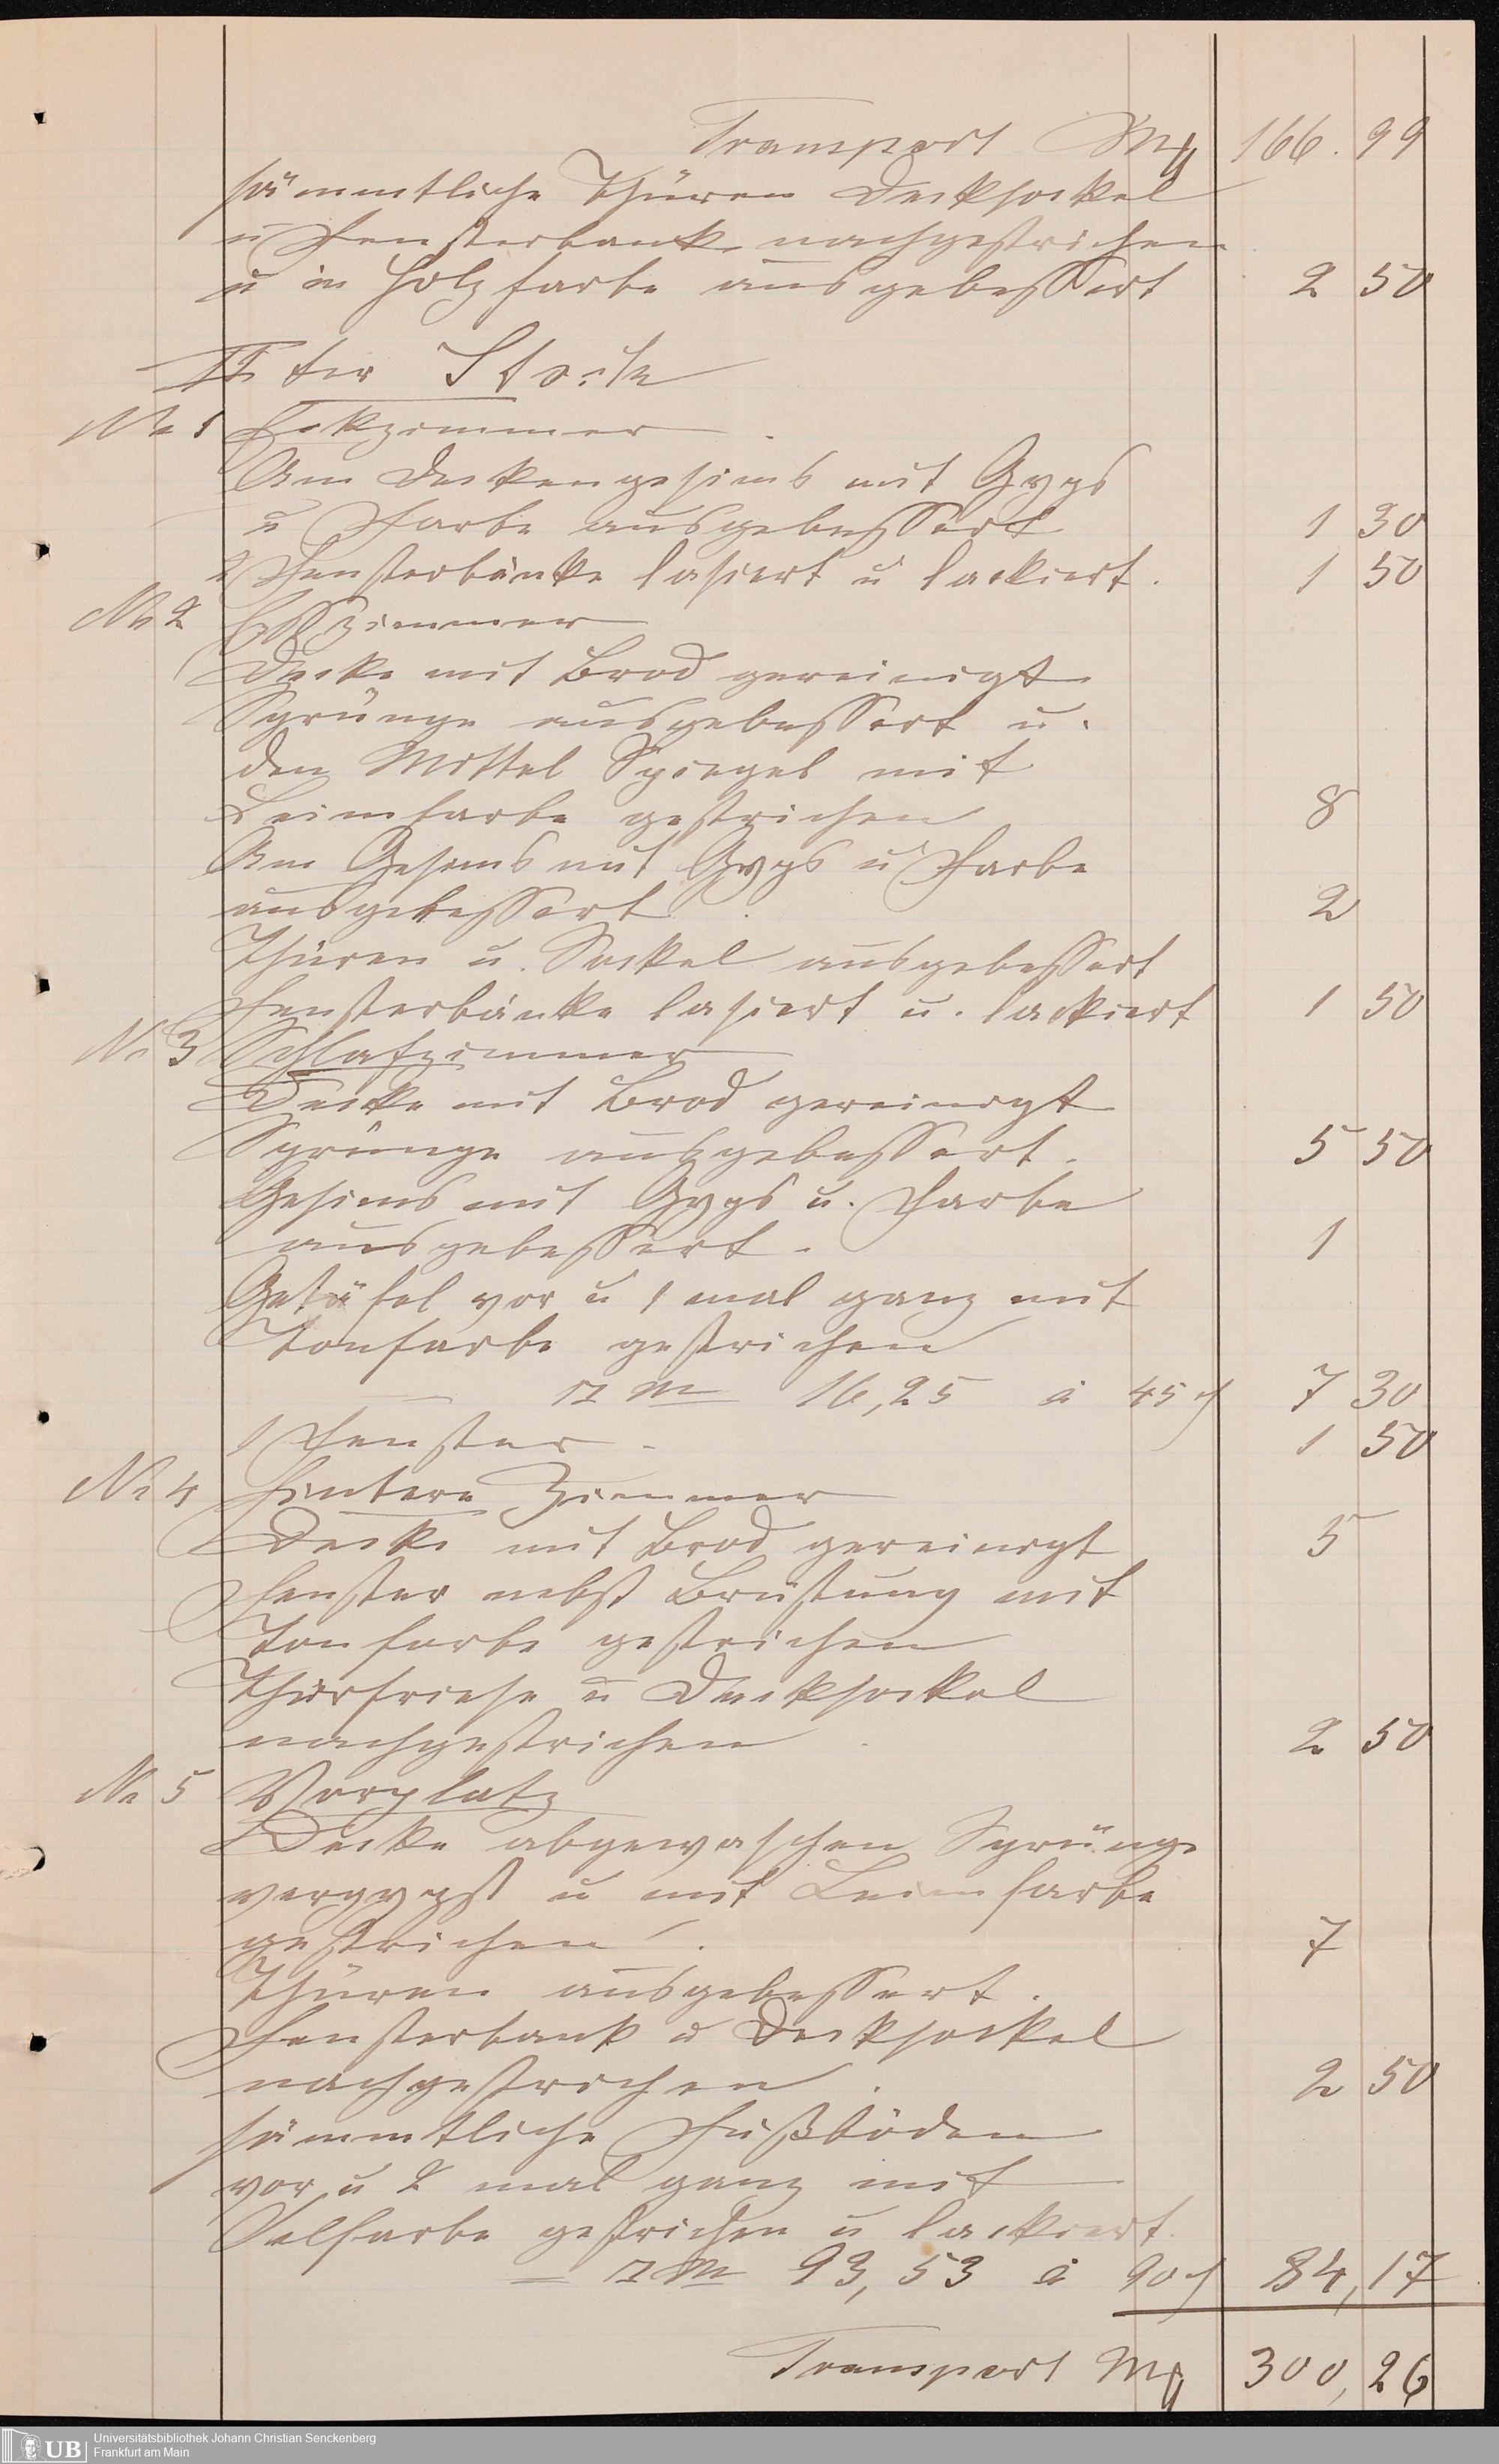 Transport M 166. 99
sämmtliche Thüren Decksockel
u Fensterbank nachgestrichen
u in Holzfarbe ausgebessert 2 50
II ter Stock
No 1 Eckzimmer
Am Deckengesims mit Gyps
u Farbe ausgebessert 1 30
2 Fensterbänke lasiert u lackiert. 1 50
No 2 Eßzimmer
Decke mit Brod gereinigt
Sprünge ausgebessert u.
den Mittel Spiegel mit
Leimfarbe gestrichen 8
Am Gesims mit Gyps u Farbe
ausgebessert. 2
Thüren u. Sockel ausgebessert
Fensterbänke lasiert u. lackiert 1 50
No 3 Schlafzimmer
Decke mit Brod gereinigt
Sprünge ausgebessert. 5 50
Gesims mit Gyps u. Farbe
ausgebessert. 1
Getäfel vor u 1 mal ganz mit
Tonfarbe gestrichen
□ m 16,25 à 45 ₰ 7 30
1 Fenster. 1 50
No 4 Hintere Zimmer
Decke mit Brod gereinigt 5
Fenster nebst Brüstung mit
Tonfarbe gestrichen
Thürfriese u Decksockel
nachgestrichen. 2 50
No 5 Vorplatz
Decke abgewaschen Sprünge
vergypst u mit Leimfarbe
gestrichen. 7
Thüren ausgebessert.
Fensterbank u Decksockel
nachgestrichen. 2 50
sämmtliche Fußböden
vor u 2 mal ganz mit
Oelfarbe gestrichen u lackiert.
= □ m 93,53 à 90 ₰ 84,17
Transport M 300,26
UB Universitätsbibliothek Johann Christian Senckenberg
Frankfurt am Main